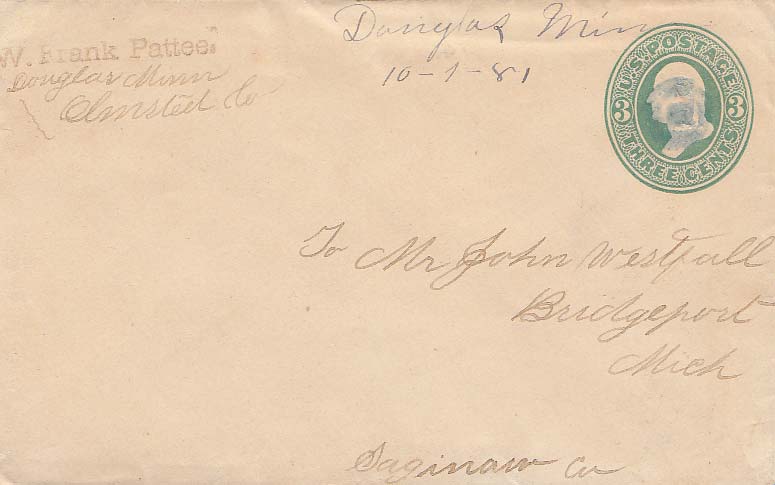 W. Frank Pattee.
Douglas Minn
Olmsted Co
Douglas Minn
10-1-81
U.S. POSTAGE
3 3
THREE CENTS
To Mr John Westfall
Bridgeport
Mich
Saginaw Co